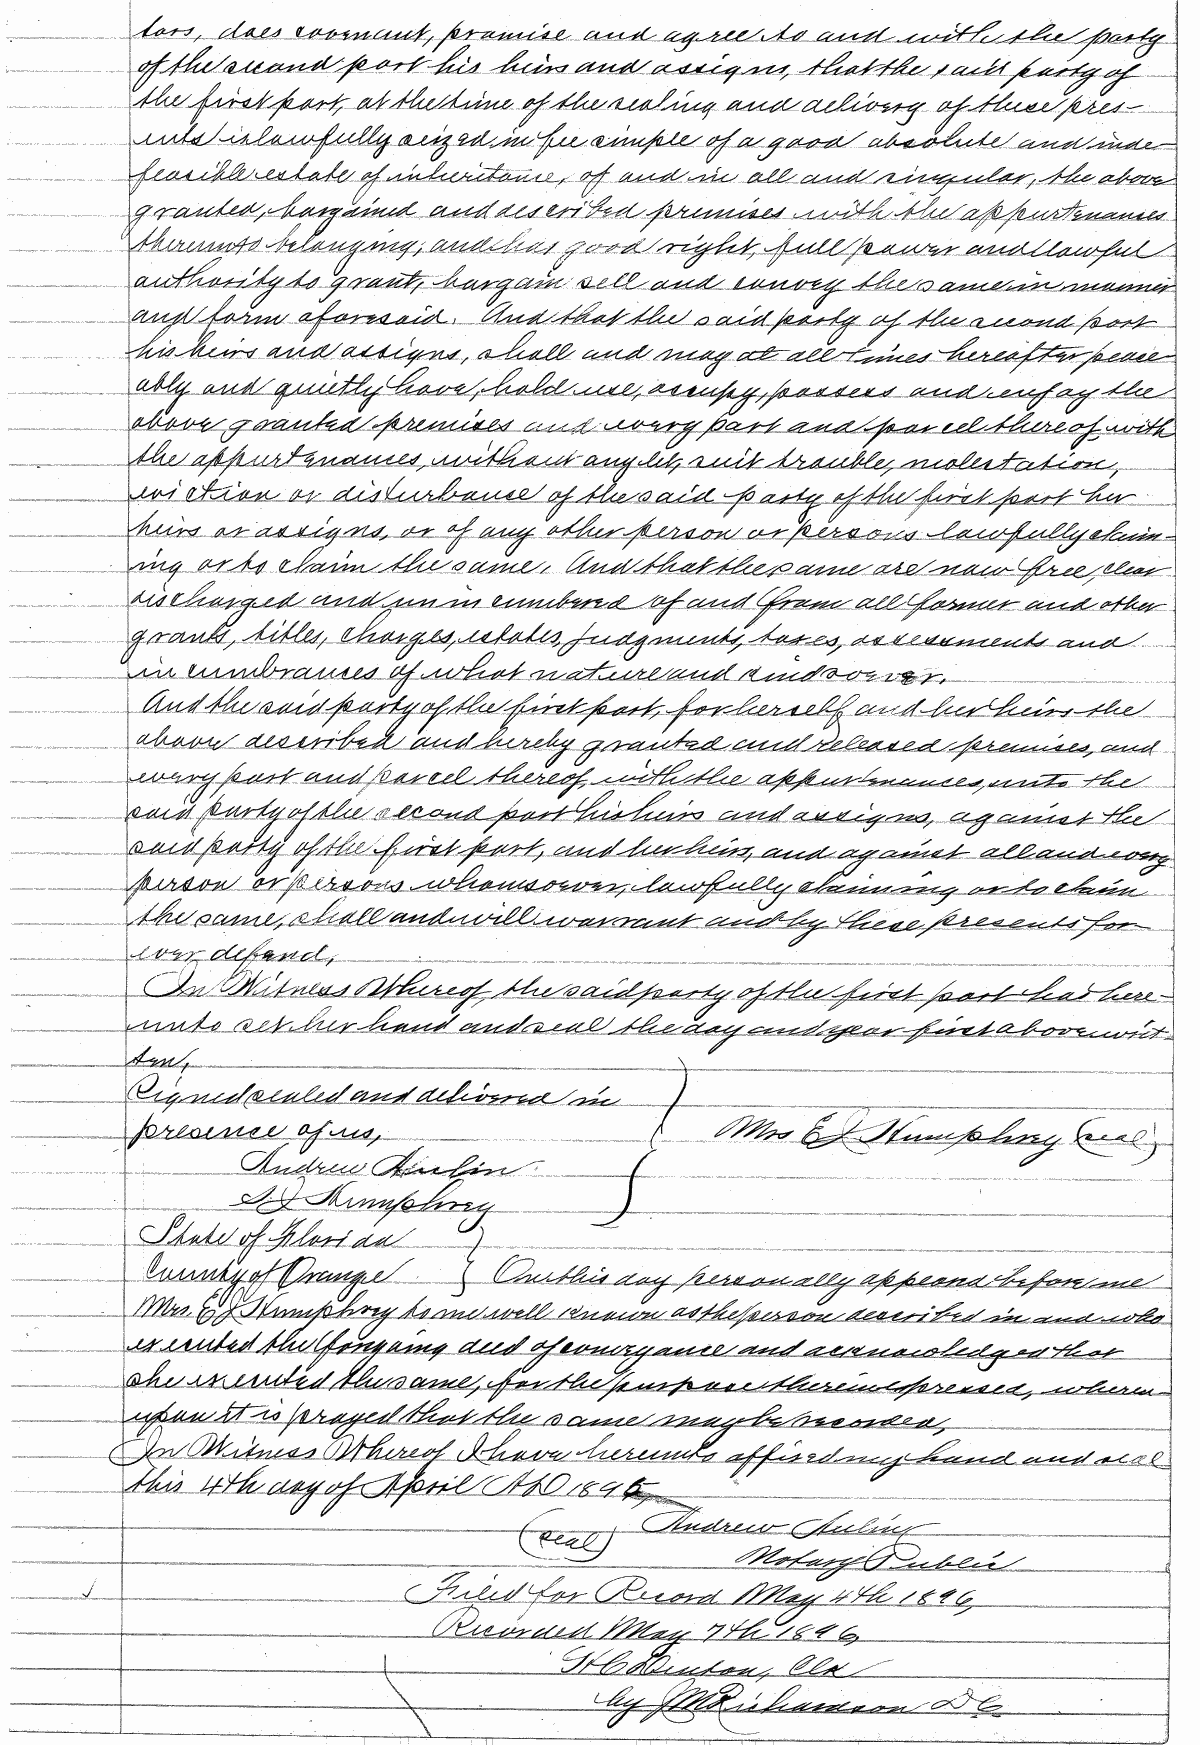 tors, does covenant, promise and agree to and with the party
of the second part his heirs and assigns, that the said party of
the first part, at the time of the sealing and delivery of these pres-
ents is lawfully seized in fee simple of a good absolute and inde-
feasible estate of inheritance, of and in all and singular, the above
granted, bargained and described premises with the appurtenances
thereunto belonging, and has good right, full power and lawful
authority to grant, bargain sell and convey the same in manner
and form aforesaid. And that the said party of the second part
his heirs and assigns, shall and may at all times hereafter peace
ably and quietly have, hold use, occupy, possess and enjoy the
above granted premises and every part and parcel thereof with
the appurtenances, without any let, suit trouble, molestation,
eviction or disturbance of the said party of the first part her
heirs or assigns, or of any other person or persons lawfully claim-
ing or to claim the same. And that the same are now free, clear
discharged and unincumbered of and from all former and other
grants, titles, charges, estates, judgments, taxes, assessments and
incumbrances of what nature and kind soever.
And the said party of the first part, for herself and her heirs the
above described and hereby granted and released premises, and
every part and parcel thereof, with the appurtenances, unto the
said party of the second part his heirs and assigns, against the
said party of the first part, and her heirs, and against all and every
person or persons whomsoever, lawfully claiming or to claim
the same, shall and will warrant and by these presents for
ever defend,
In Witness Whereof, the said party of the first part has here-
unto set her hand and seal the day and year first above writ-
ten,
Signed sealed and delivered in
presence of us,
Mrs E J Humphrey (seal)
Andrew Aulin
Humphrey
State of Florida
County of Orange } On this day personally appeared before me
Mrs. E J Humphrey to me well known as the person described in and who
executed the foregoing deed of conveyance and acknowledged that
she executed the same, for the purpose therein expressed, where-
upon it is prayed that the same may be recorded,
In Witness Whereof I have hereunto affixed my hand and seal
this 4th day of April AD 1896,
Andrew Aulin
(seal)
Notary Public
Filed for Record May 4th 1896,
Recorded May 7th 1896,
Clk
by J M Richardson D C